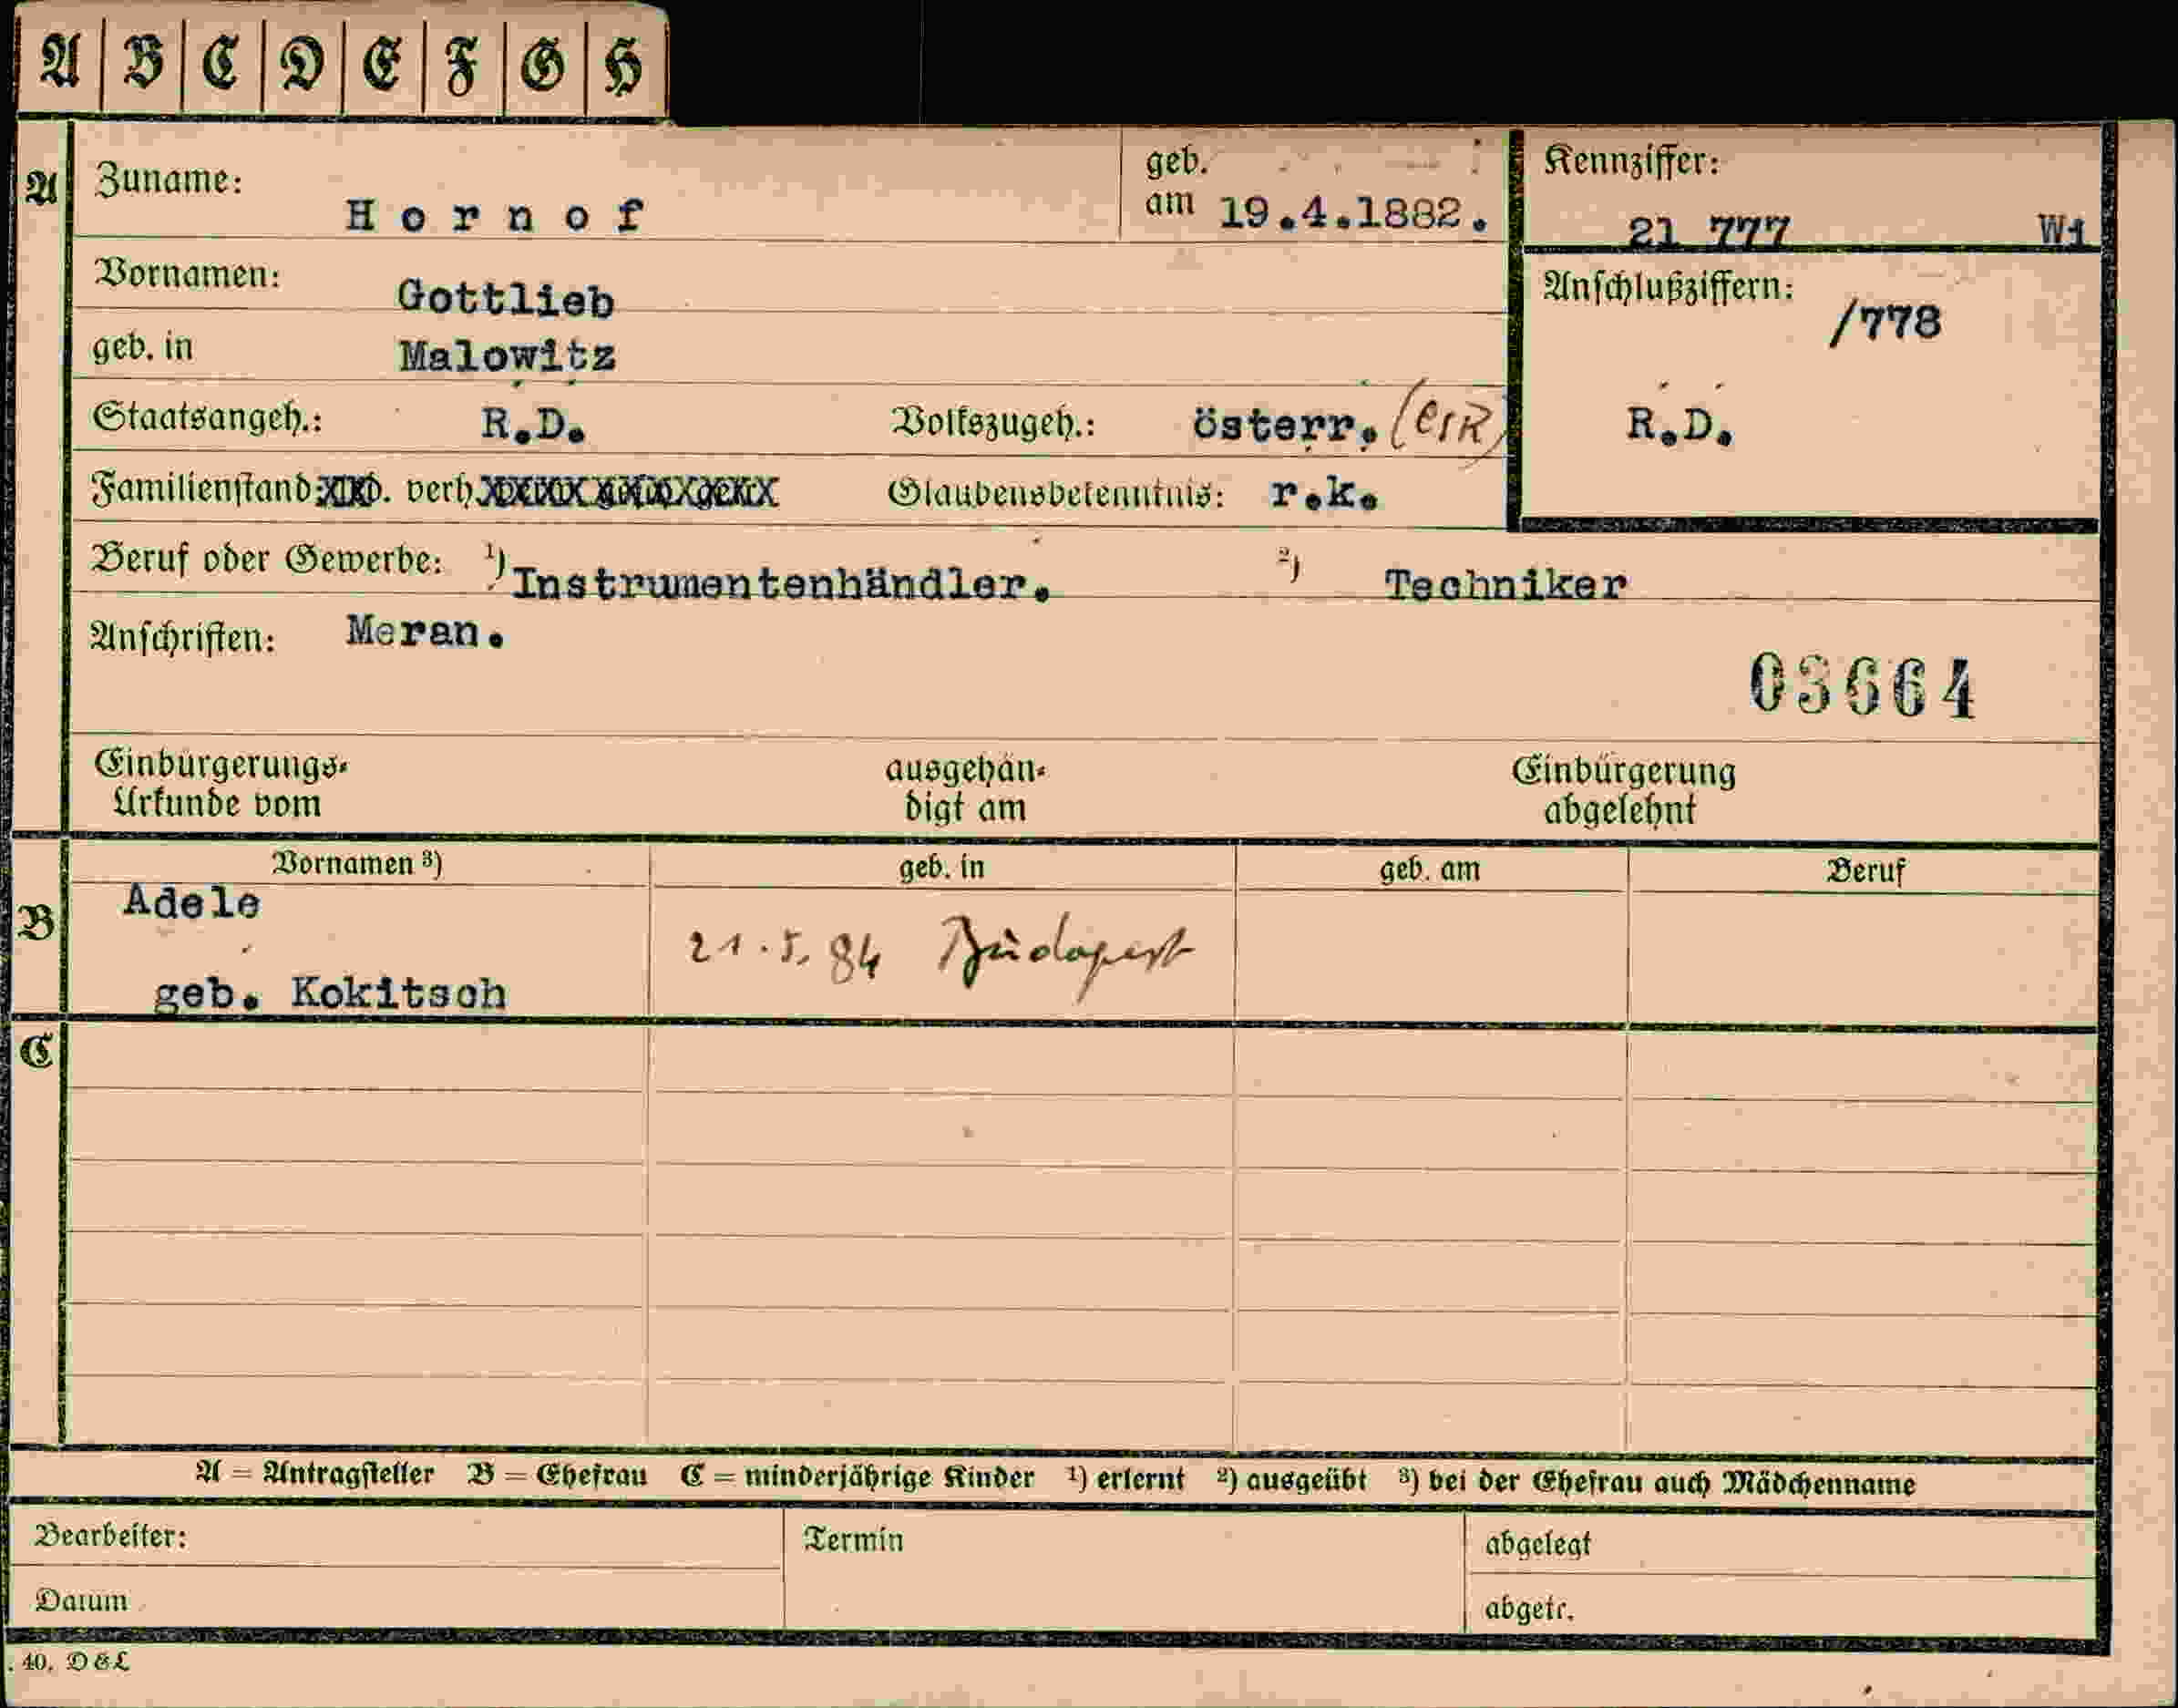 A B C D E F G H
A Zuname: Hornof geb. am 19.4.1882. Kennziffer: 21 777 Wi
Vornamen: Gottlieb Anschlußziffern: /778
geb. in Malowitz
Staatsangeh.: R.D. Volkszugeh.: österr. R.D.
Familienstand: verh. Glaubensbekenntnis: r.k.
Beruf oder Gewerbe: ¹) Instrumentenhändler. ²) Techniker
Anschriften: Meran.
03664
Einbürgerungs- ausgehän- Einbürgerung
Urkunde vom digt am abgelehnt
Vornamen ³) geb. in geb. am Beruf
B Adele
21.5.84 Budapest
geb. Kokitsch
C
A = Antragsteller B = Ehefrau C = minderjährige Kinder ¹) erlernt ²) ausgeübt ³) bei der Ehefrau auch Mädchenname
Bearbeiter: Termin abgelegt
Datum abgetr.
. 40. D&L